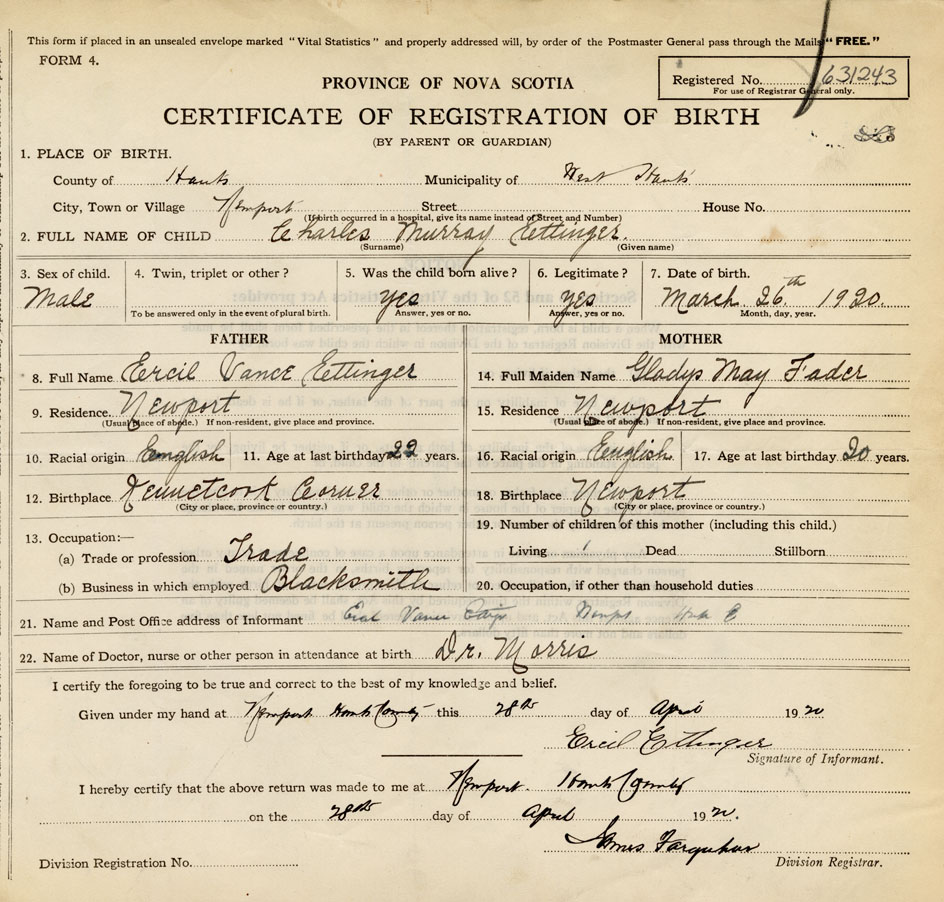 This form if placed in an unsealed envelope marked "Vital Statistics" and properly addressed will, by order of the Postmaster General pass through the Mails "FREE."
FORM 4.
Registered No. 631243
For use of Registrar General only.
PROVINCE OF NOVA SCOTIA
CERTIFICATE OF REGISTRATION OF BIRTH
(BY PARENT OR GUARDIAN)
1. PLACE OF BIRTH.
County of Hants Municipality of West Hants
City, Town or Village Newport Street House No.
(If birth occurred in a hospital, give its name instead of Street and Number)
2. FULL NAME OF CHILD Charles Murray Ettinger.
(Surname) (Given name)
3. Sex of child. 4. Twin, triplet or other? 5. Was the child born alive? 6. Legitimate? 7. Date of birth.
Male Yes Yes March 26th 1920.
To be answered only in the event of plural birth. Answer, yes or no. Answer, yes or no. Month, day, year.
FATHER MOTHER
8. Full Name Ercil Vance Ettinger 14. Full Maiden Name Gladys May Fader
9. Residence. Newport 15. Residence Newport
(Usual place of abode.) If non-resident, give place and province. (Usual place of abode.) If non-resident, give place and province.
10. Racial origin English 11. Age at last birthday 22 years. 16. Racial origin English 17. Age at last birthday 20 years.
12. Birthplace Kennetcook Corner 18. Birthplace Newport
(City or place, province or country.) (City or place, province or country.)
19. Number of children of this mother (including this child.)
13. Occupation:—
Living 1 Dead Stillborn
(a) Trade or profession Trade
(b) Business in which employed Blacksmith 20. Occupation, if other than household duties
21. Name and Post Office address of Informant Ercil Vance
22. Name of Doctor, nurse or other person in attendance at birth Dr. Morris
I certify the foregoing to be true and correct to the best of my knowledge and belief.
Given under my hand at Newport Hants County this 28th day of April 1920
Ercil Ettinger
Signature of Informant.
I hereby certify that the above return was made to me at Newport. Hants County
on the 28th day of April 1920.
James Farquhar
Division Registration No. Division Registrar.